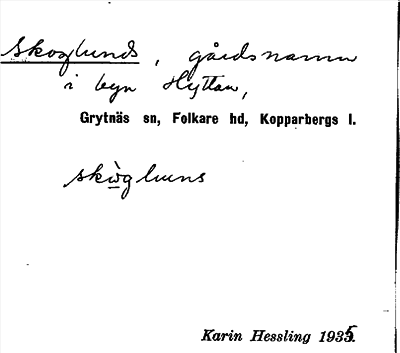 Skoglunds, gårdsnamn
i byn Hyttan,
Grytnäs sn, Folkare hd, Kopparbergs l.
skògluns
Karin Hessling 1935.